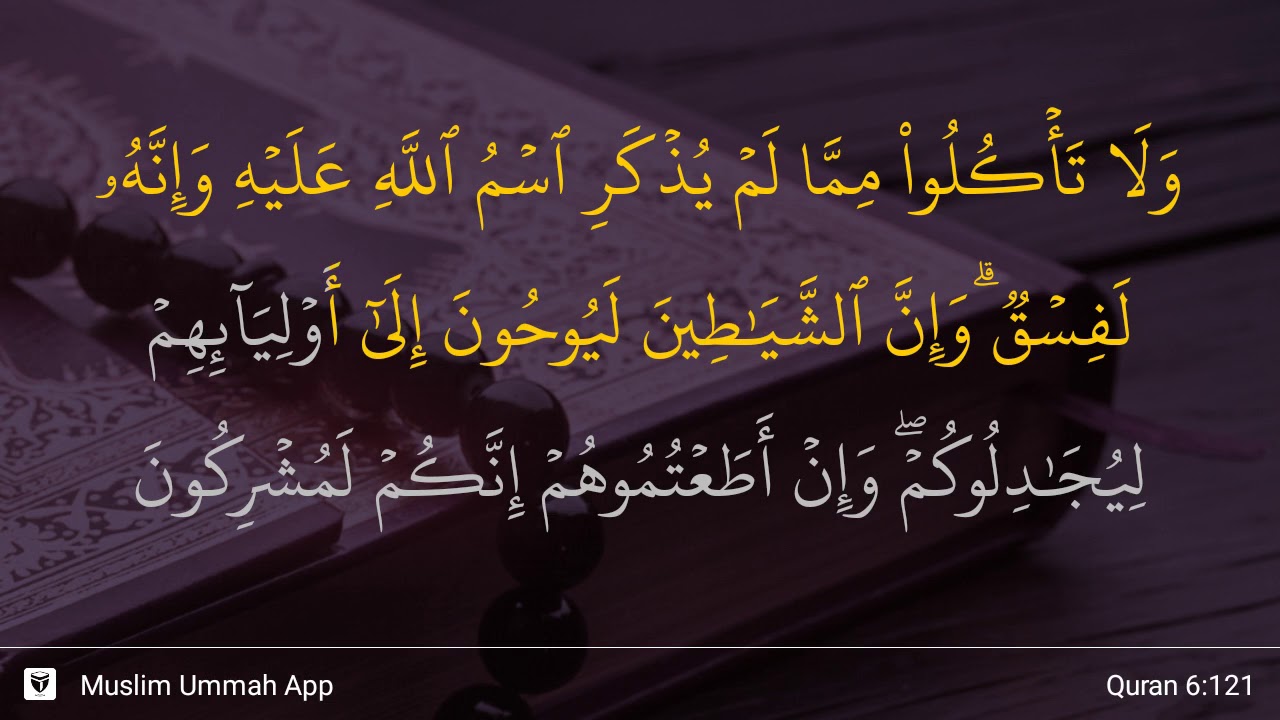 وَلَا تَأْكُلُوا۟ مِمَّا لَمْ يُذْكَرِ ٱسْمُ ٱللَّهِ عَلَيْهِ وَإِنَّهُۥ
لَفِسْقٌ ۗ وَإِنَّ ٱلشَّيَـٰطِينَ لَيُوحُونَ إِلَىٰٓ أَوْلِيَآئِهِمْ
لِيُجَـٰدِلُوكُمْ ۖ وَإِنْ أَطَعْتُمُوهُمْ إِنَّكُمْ لَمُشْرِكُونَ
Muslim Ummah App
Quran 6:121